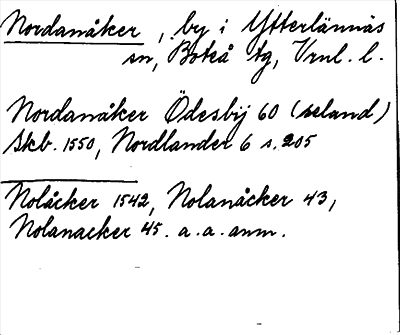 Nordanåker, by i Ytterlännäs
sn, Boteå tg, Vnl. l.
Nordanåker Ödesbÿ 60 (seland)
Skb. 1550, Nordlander 6 s. 205
Nolåcker 1542, Nolanåcker 43,
Nolanacker 45. a. a. anm.